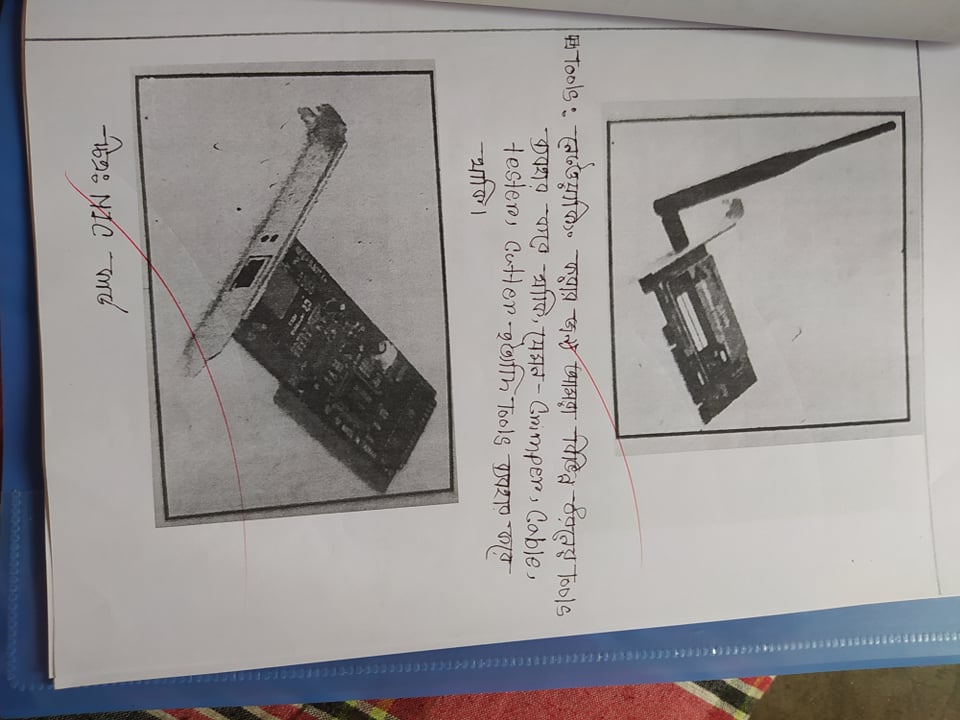 Tools: নেটওয়ার্কিং করার জন্য আমরা বিভিন্ন ধরনের Tools
ব্যবহার করে থাকি, যেমন- Crimper, Cable,
tester, Cutter ইত্যাদি Tools ব্যবহার করে
থাকি।
চিত্র: NIC কার্ড